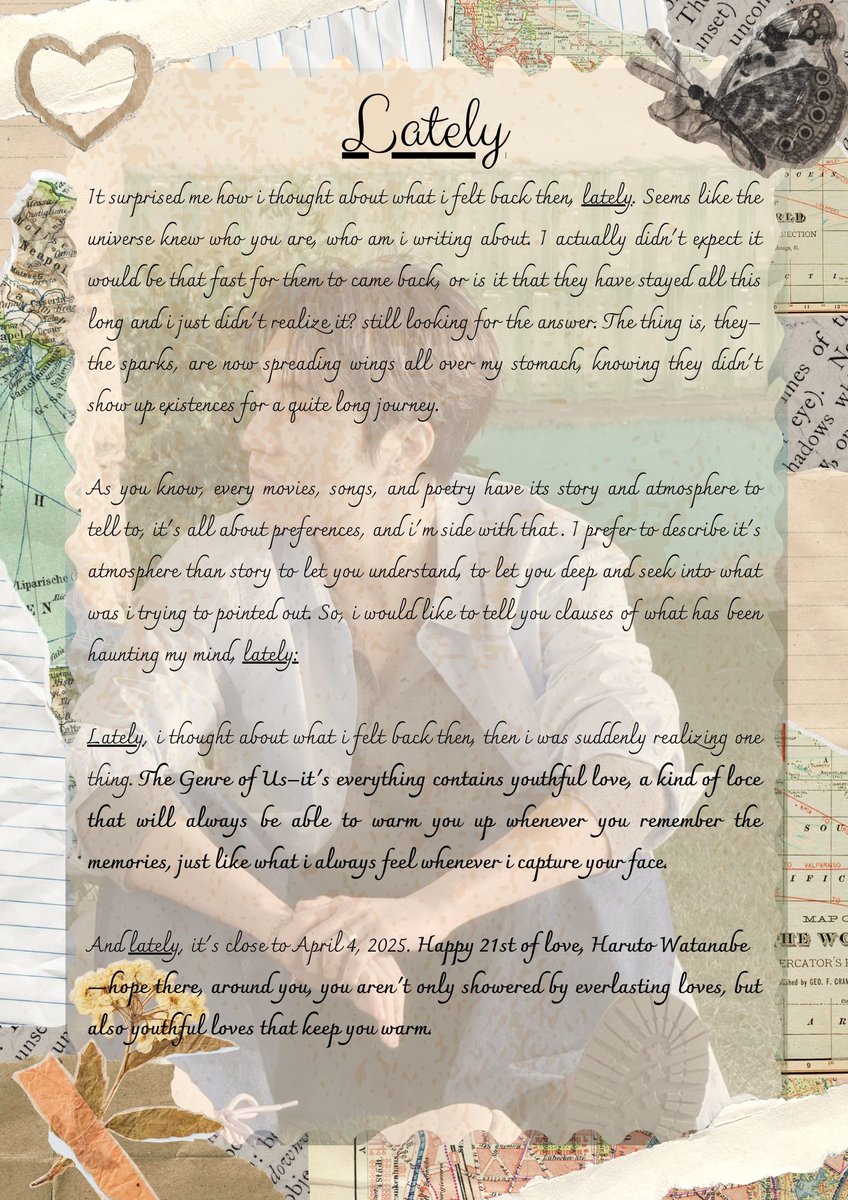 Lately
It surprised me how i thought about what i felt back then, lately. Seems like the
universe knew who you are, who am i writing about. I actually didn't expect it
would be that fast for them to came back, or is it that they have stayed all this
long and i just didn't realize it? still looking for the answer. The thing is, they—
the sparks, are now spreading wings all over my stomach, knowing they didn't
show up existences for a quite long journey.
As you know, every movies, songs, and poetry have its story and atmosphere to
tell to, it's all about preferences, and i'm side with that . I prefer to describe it's
atmosphere than story to let you understand, to let you deep and seek into what
was i trying to pointed out. So, i would like to tell you clauses of what has been
haunting my mind, lately:
Lately, i thought about what i felt back then, then i was suddenly realizing one
thing. The Genre of Us—it's everything contains youthful love, a kind of loce
that will always be able to warm you up whenever you remember the
memories, just like what i always feel whenever i capture your face.
And lately, it's close to April 4, 2025. Happy 21st of love, Haruto Watanabe
—hope there, around you, you aren't only showered by everlasting loves, but
also youthful loves that keep you warm.
The
unset)
uncon
OCEAN
RLD
nes of t
eye).
hadows w
Neapol
Liparische
H
EN
SOU
IFIC
TO VALPARAISO
MAP O
HE WO
ERCATOR'S
lished by GEO. F. CRA
AR
9